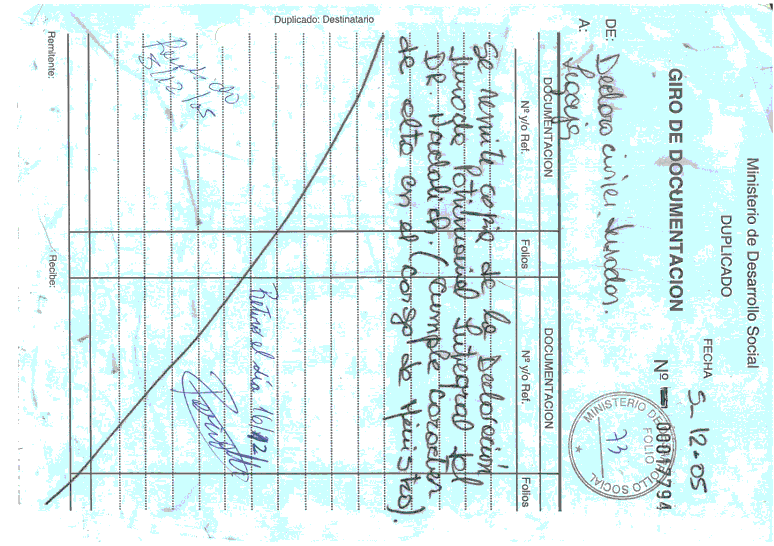 Ministerio de Desarrollo Social
DUPLICADO
GIRO DE DOCUMENTACION
FECHA 5-12-05
Nº 00017794
MINISTERIO DE DESARROLLO SOCIAL
FOLIO
73
DE:
A: Legajo
DOCUMENTACION
Nº y/o Ref.
Folios
DOCUMENTACION
Nº y/o Ref.
Folios
Se remite copia de la Declaración
Jurada Patrimonial Integral del
DR Nadalich. (Cumple carácter
de alta en el cargo de Ministro).
Retiro el día 16/12/
Duplicado: Destinatario
Remitente:
Recibe: